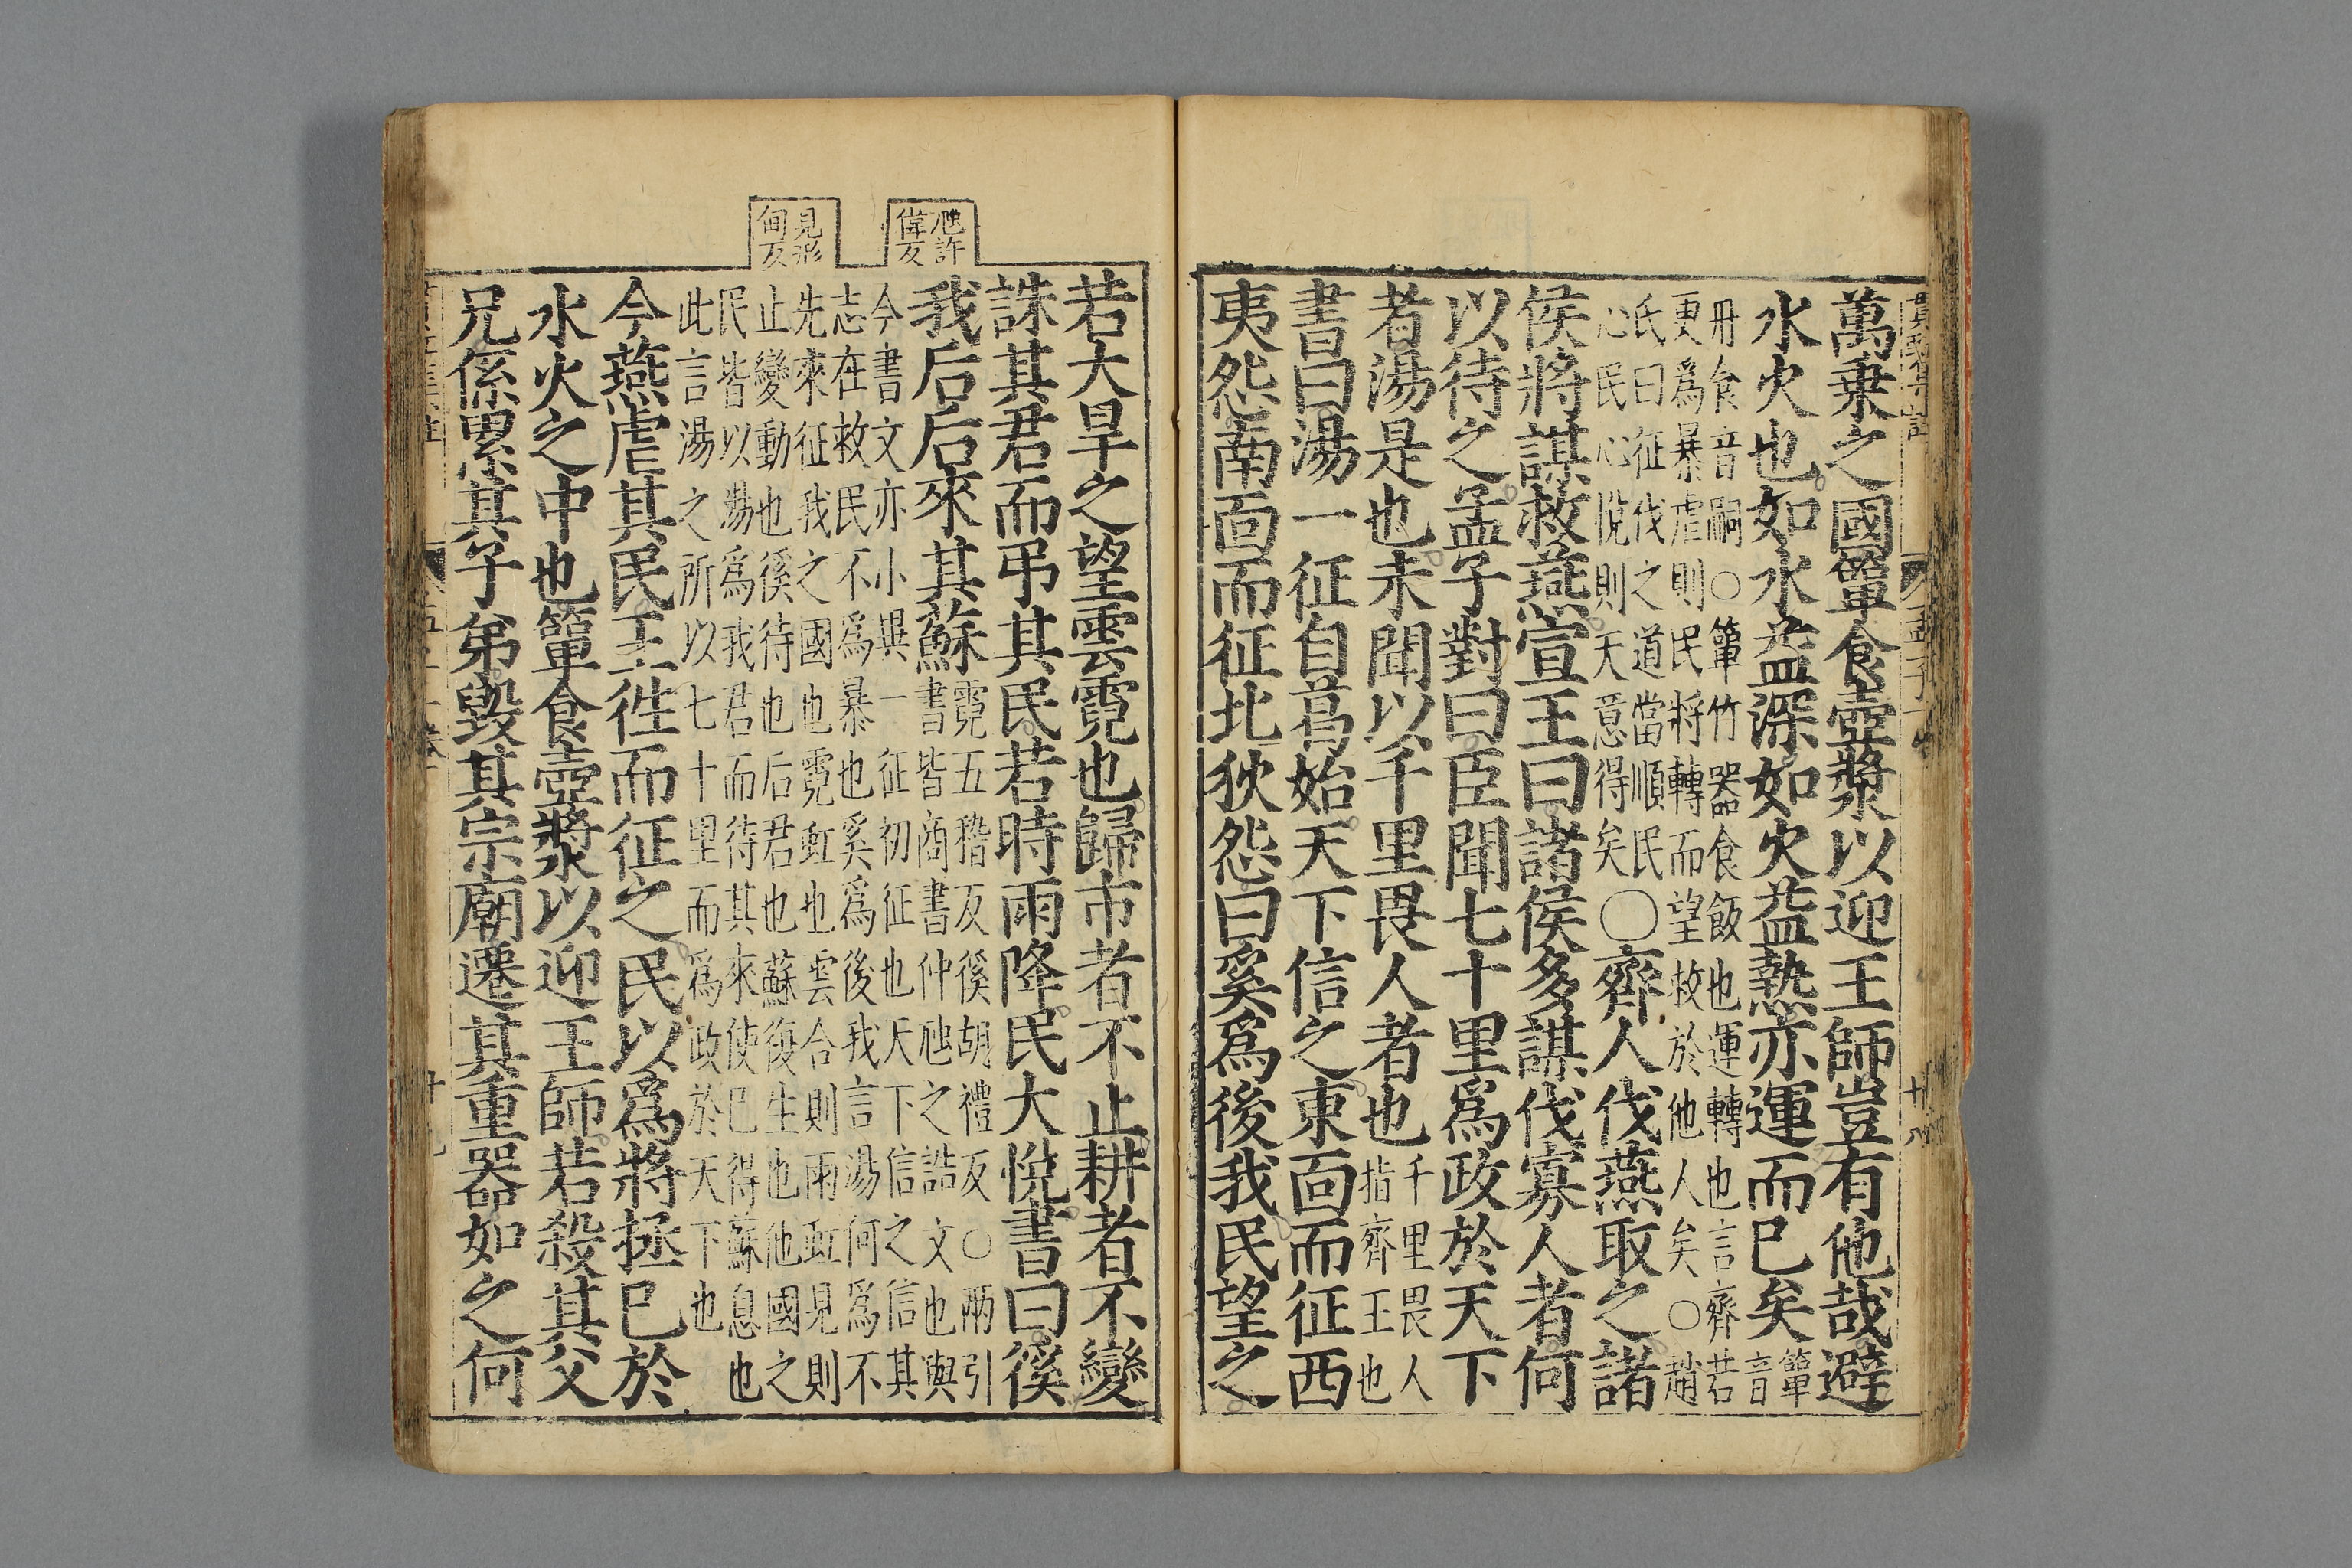 萬乗之國簞食壺漿以迎王師豈有他哉避
水火也如水益深如火益熱亦運而已矣
簞
音
丹食音嗣○簞竹器食飯也運轉也言齊若
更爲暴虐則民將轉而望救於他人矣○趙
氏曰征伐之道當順民
心民心悅則天意得矣
○齊人伐燕取之諸
侯將謀救燕宣王曰諸侯多謀伐寡人者何
以待之孟子對曰臣聞七十里爲政於天下
者湯是也未聞以千里畏人者也
千里畏人
指齊王也
書曰湯一征自葛始天下信之東面而征西
夷怨南面而征北狄怨曰奚爲後我民望之
虺許
偉反
見形
甸反
若大旱之望雲霓也歸市者不止耕者不變
誅其君而弔其民若時雨降民大悅書曰徯
我后后來其蘇
霓五稽反徯胡禮反○兩引
書皆商書仲虺之誥文也與
今書文亦小異一征初征也天下信之信其
志在救民不爲暴也奚爲後我言湯何爲不
先來征我之國也霓虹也雲合則雨虹見則
止變動也徯待也后君也蘇復生也他國之
民皆以湯爲我君而待其來使已得蘇息也
此言湯之所以七十里而爲政於天下也
今燕虐其民王徃而征之民以爲將拯已於
水火之中也簞食壺漿以迎王師若殺其父
兄係累其子弟毀其宗廟遷其重器如之何